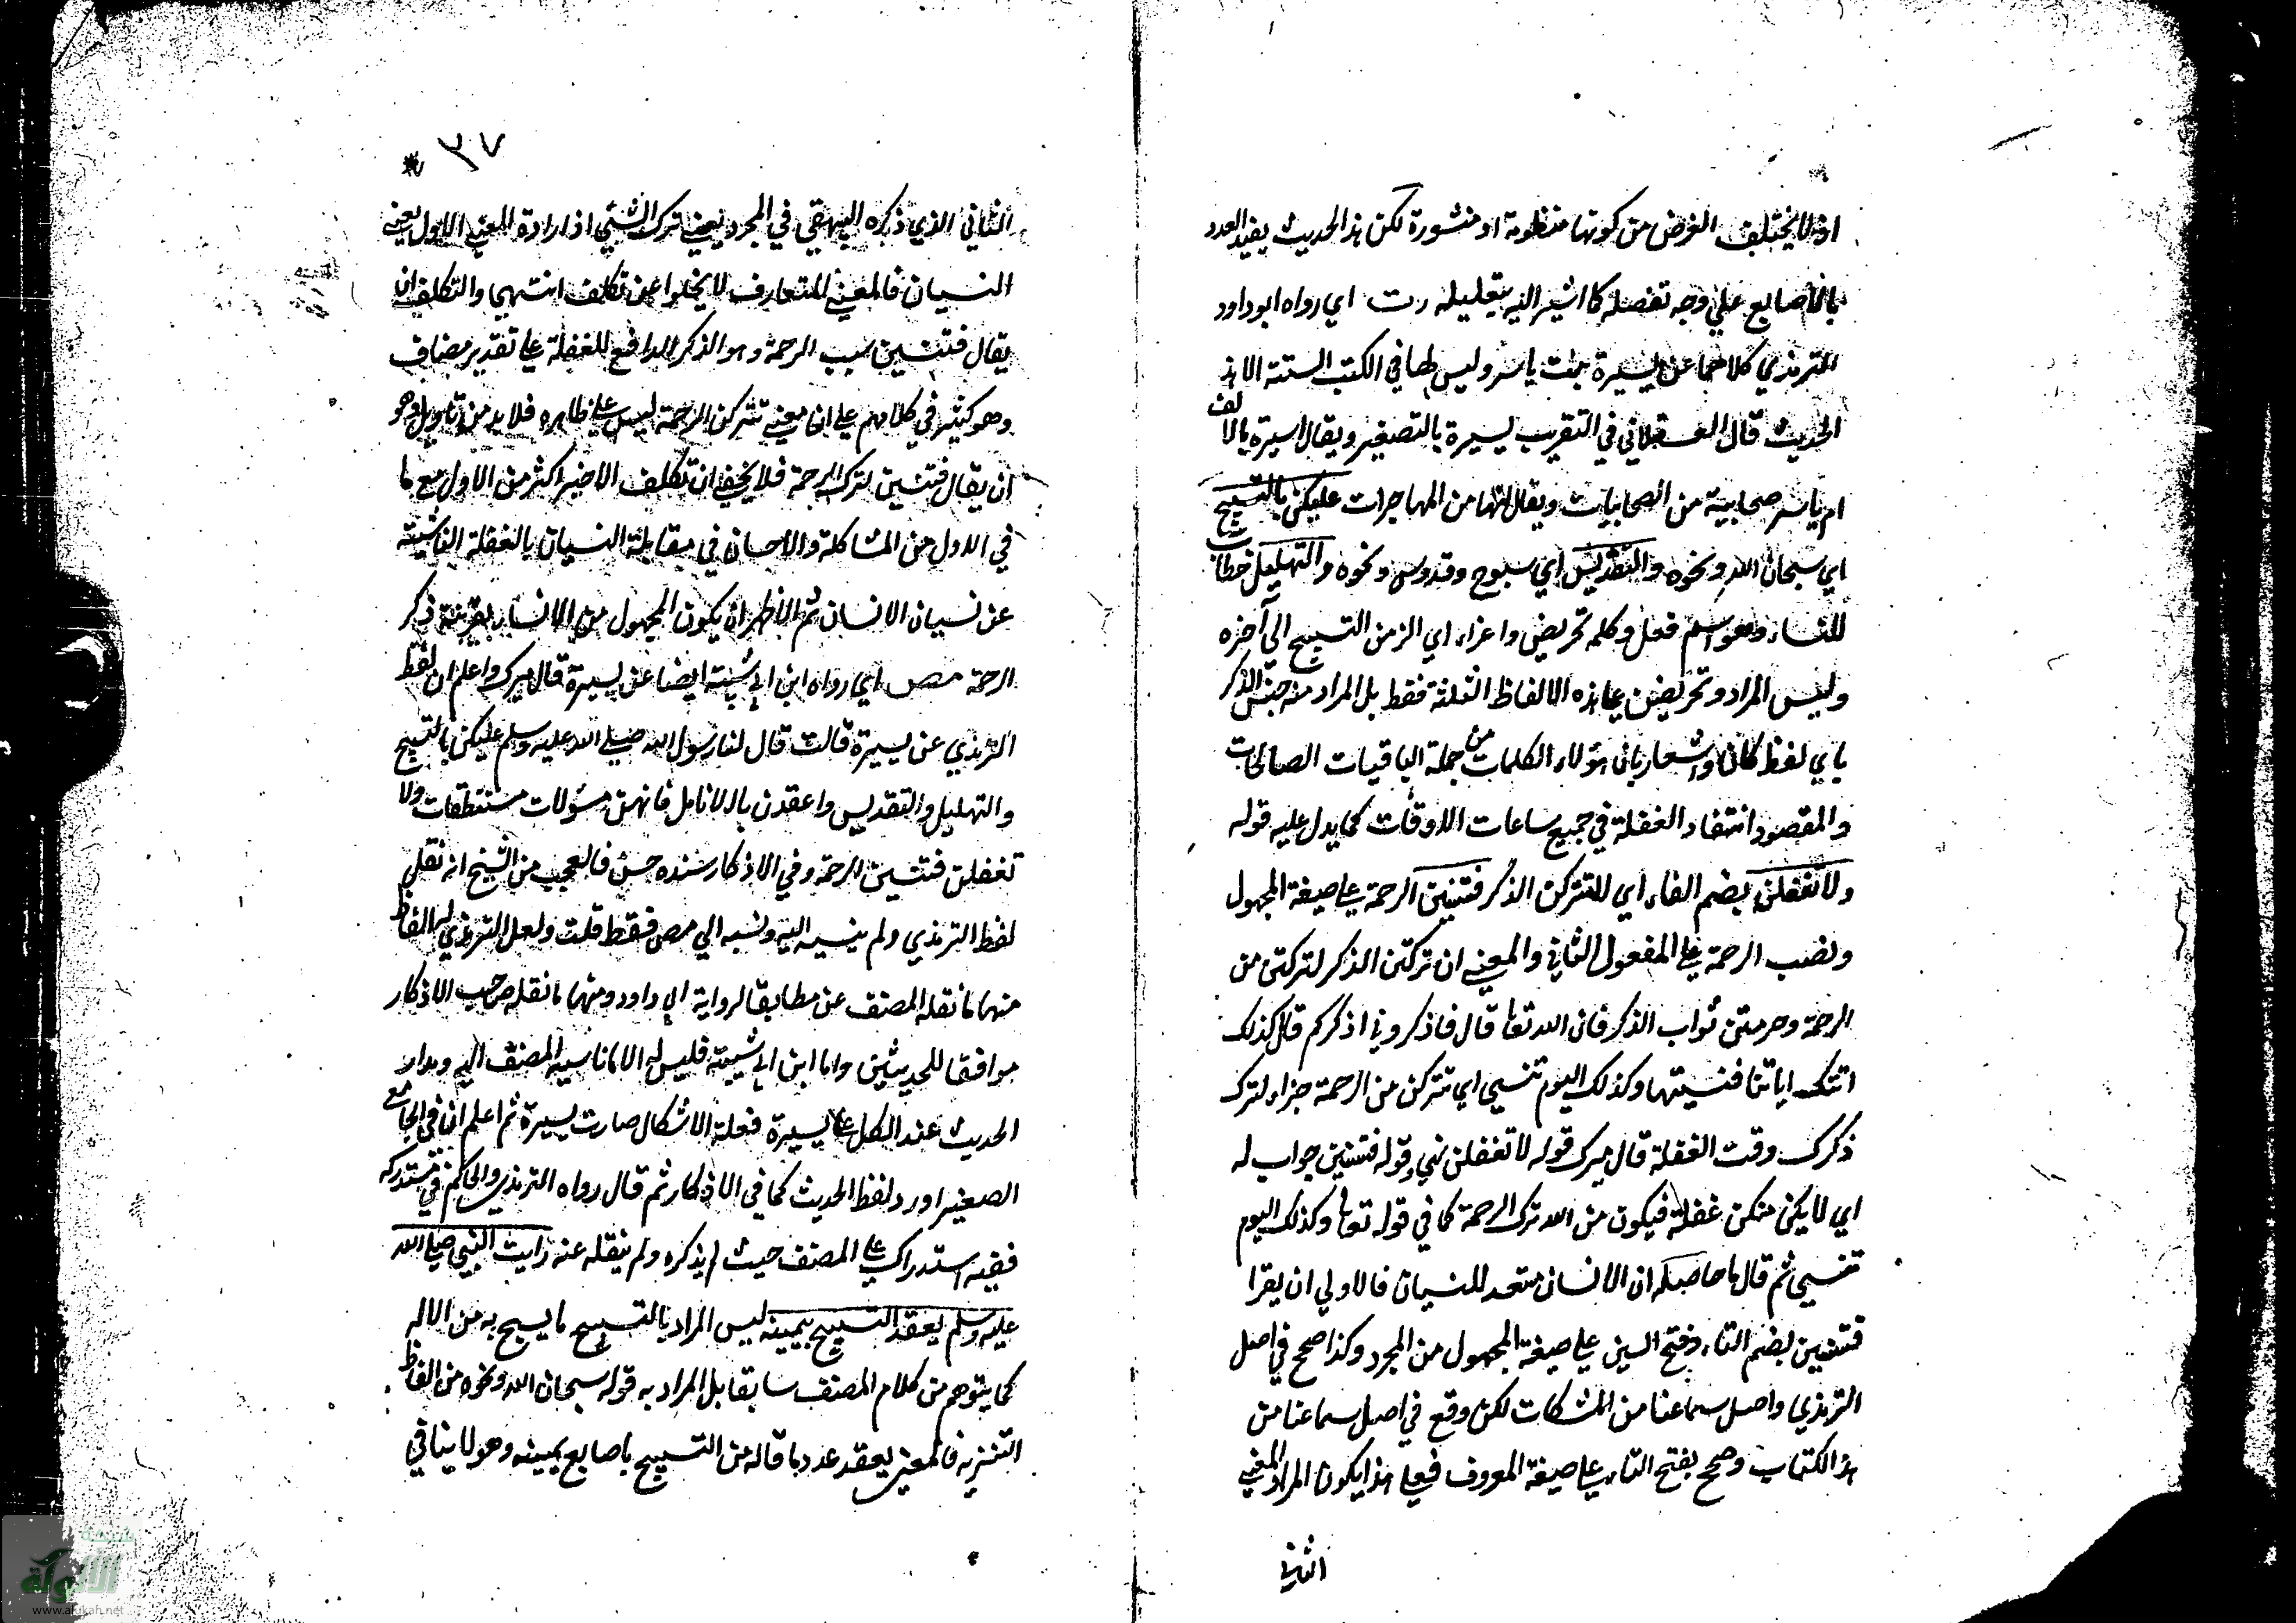 اذ لا يختلف الغرض من كونها منظومة او منثورة لكن هذا الحديث يفيد العدد
بالأصابع علي وجه تفصله كما اشير اليه بتعليله رت اي رواه ابو داود
الترمذي كلاهما عن يسيرة بنت ياسر وليس لها في الكتب الستة الا هذا
الحديث قال العسقلاني في التقريب يسيرة بالتصغير ويقال اسيرة بالالف
ام ياسر صحابية من الصحابيات ويقال انها من المهاجرات عليكن بالتسبيح
اي سبحان الله ونحوه والتقديس اي سبوح وقدوس ونحوه والتهليل خطاب
للنساء وهو اسم فعل وكلمة تحريض واغراء اي الزمن التسبيح الى آخره
وليس المراد تحريضهن على هذه الالفاظ الثلثة فقط بل المراد منه جنس الذكر
باي لفظ كان واشعار بان هؤلاء الكلمات من جملة الباقيات الصالحات
والمقصود انتفاء الغفلة في جميع ساعات الاوقات كما يدل عليه قوله
ولا تغفلن بضم الفاء اي لا تتركن الذكر فتنسين الرحمة على صيغة المجهول
ونصب الرحمة على المفعول الثاني والمعنى ان تركتن الذكر لتركتن من
الرحمة وحرمتن ثواب الذكر فان الله تعا قال فاذكروني اذكركم قال كذلك
اتتك اياتنا فنسيتها وكذلك اليوم تنسى اي تتركن من الرحمة جزاء لترك
ذكرك وقت الغفلة قال ميرك قوله لا تغفلن نهي وقوله فتنسين جواب له
اي لا يكن منكن غفلة فيكون من الله ترك الرحمة كما في قوله تعا وكذلك اليوم
تنسى ثم قال ما حاصله ان الانسان متعمد للنسيان فالاولي ان يقرا
فتنسين بضم التاء وفتح السين على صيغة المجهول من المجرد وكذا صحح في اصل
الترمذي واصل سماعنا من المشكات لكن وقع في اصل سماعنا من
هذا الكتاب وصحح بفتح التاء على صيغة المعروف فعلى هذا يكون المراد المعنى
الثاني
٣٧
الثاني الذي ذكره البيهقي في المجرد يعني ترك الشيء اذ ارادة المعنى الاول يعني
النسيان فالمعنى المتعارف لا يخلوا عن تكلف انتهى والتكلف ان
يقال فتنسين سبب الرحمة وهو الذكر الدافع للغفلة على تقدير مضاف
وهو كثير في كلامهم على ان معنى تتركن الرحمة ليس على ظاهره فلا بد من تاويل وهو
ان يقال فتنسين لترك الرحمة فلا يخفى ان تكلف الاخير اكثر من الاول مع ما
في الاول من المشاكلة والاحسان في مقابلة النسيان بالغفلة الناشية
عن نسيان الانسان ثم الأظهر ان يكون المجهول من الانساء بقرينة ذكر
الرحمة مص اي رواه ابن ابي شيبة ايضا عن يسيرة قال ميرك واعلم ان لفظ
الترمذي عن يسيرة قالت قال لنا رسول الله صلى الله عليه وسلم عليكن بالتسبيح
والتهليل والتقديس واعقدن بالانامل فانهن مسؤلات مستنطقات ولا
تغفلن فتنسين الرحمة وفي الاذكار سنده حسن فالعجب من الشيخ انه نقل
لفظ الترمذي ولم ينسبه اليه ونسبه الي مص فقط قلت ولعل الترمذي له الفاظ
منها ما نقله المصنف عن مطابقا لرواية ابي داود ومنها ما نقله صاحب الاذكار
موافقا للحديثين واما ابن ابي شيبة فليس له الا ما نسبه المصنف اليه ومدار
الحديث عند الكل على يسيرة فعلة الاشكال صارت يسيرة ثم اعلم ان في الجامع
الصغير اورد لفظ الحديث كما في الاذكار ثم قال رواه الترمذي والحاكم في مستدركه
ففيه استدراك على المصنف حيث لم يذكره ولم ينقله عنه رايت النبي صلى الله
عليه وسلم يعقد التسبيح بيمينه ليس المراد بالتسبيح ما يسبح به من الاله
كما يتوهم من كلام المصنف سابقا بل المراد به قوله سبحان الله ونحوه من الفاظ
التنزيه فالمعنى يعقد عدد ما قاله من التسبيح باصابع يمينه وهو لا ينافي
شبكة
الألوكة
www.alukah.net